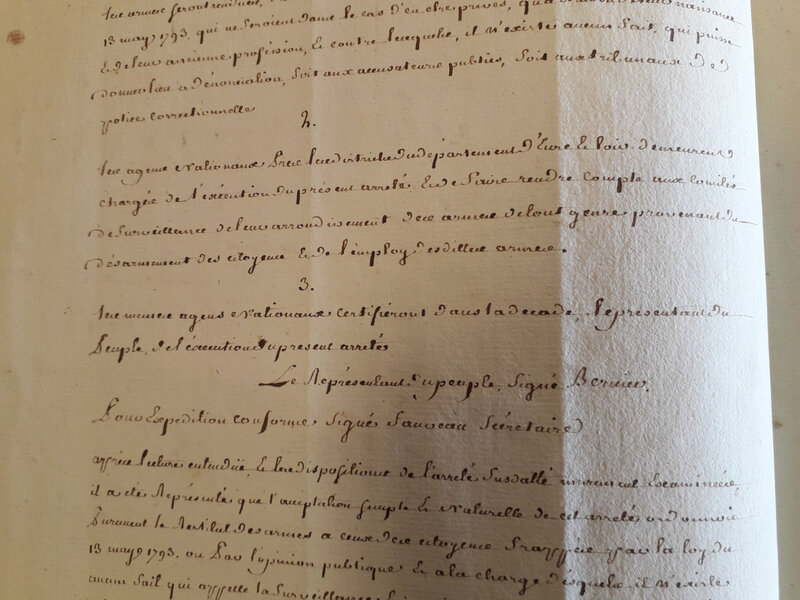 les armes seront rendues,
13 may 1793, qui ne seroient dans le cas d'en etre privés, naissance
& de leur ancienne profession, & contre lesquels, il n'existe aucun fait, qui puisse
donner lieu a dénonciation, soit aux accusateurs publics, soit aux tribunaux de
police correctionnelle
2.
les agens nationaux près les districts du departement d'Eure & loir demeurent
chargés de l'exécution du présent arreté & de faire rendre compte aux comités
de surveillance de leur arrondissement des armes de tout genre provenant du
désarmement des citoyens & de l'employ desdittes armes.
3.
les memes agens nationaux certifieront dans la decade, le représentant du
Peuple, de l'éxécution du present arreté
Le Représentant du peuple, Signé Bernier.
Pour Expedition conforme Signé Sauveau Sécrétaire
après lecture entenduë, & les dispositions de l'arreté susdatté murement Examinées,
il a été Représenté que l'acceptation simple & naturelle de cet arreté ordonnoit
Purement le Restitut des armes a ceux des citoyens frappés par la loy du
13 may 1793. ou Par l'opinion publique & a la charge desquels il n'existe
aucun fait qui appelle la surveillance